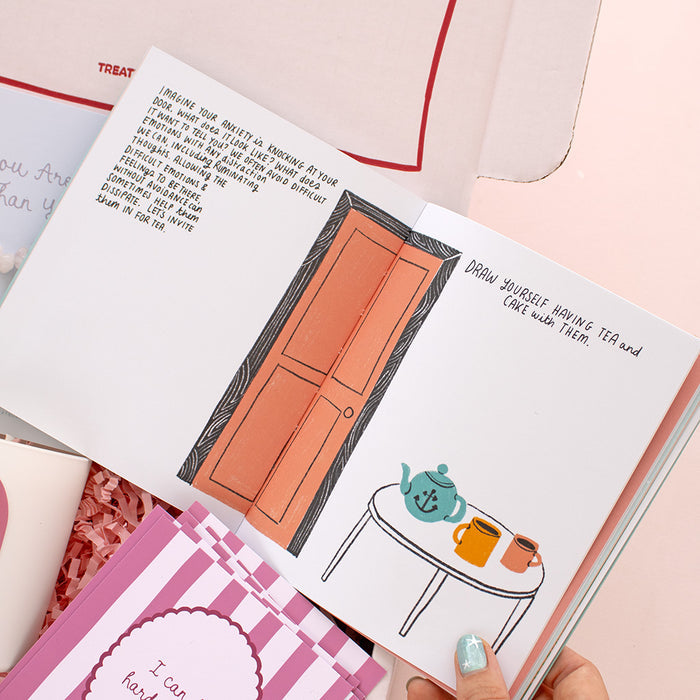 TREAT
IMAGINE YOUR ANXIETY is KNOCKING AT YOUR
DOOR. WHAT does IT LOOK LIKE? WHAT does
IT WANT TO TELL YOU? WE OFTEN AVOID DIFFICULT
EMOTIONS WITH ANY DISTRACTION
WE CAN, INCLUDING RUMINATING
THOUGHTS. ALLOWING THE
DIFFICULT EMOTIONS &
FEELINGS TO BE THERE,
WITHOUT AVOIDANCE can
SOMETIMES HELP them
DISSIPATE. LET'S INVITE
them IN FOR TEA.
DRAW YOURSELF HAVING TEA and
CAKE with THEM.
ou Are
han y
I can
hard